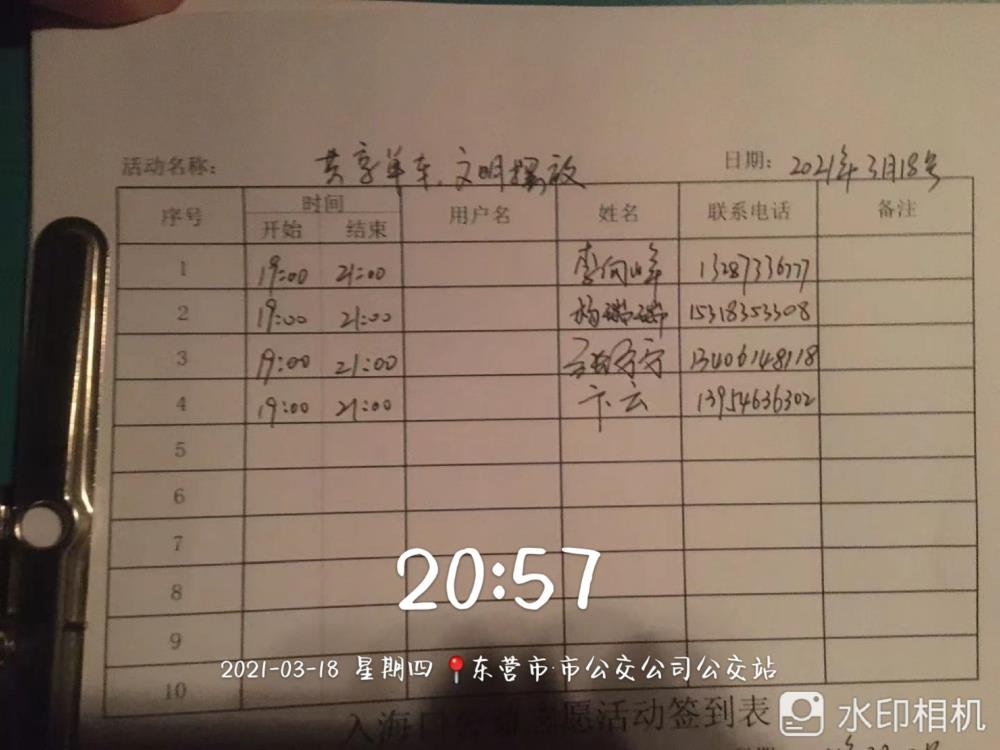 活动名称: 共享单车、文明摆放 日期: 2021年3月18号
序号 时间 用户名 姓名 联系电话 备注
开始 结束
1 19:00 21:00 李向峰 13287336777
2 19:00 21:00 杨瑞瑞 15318353308
3 19:00 21:00 13406148118
4 19:00 21:00 卞云 13954636302
5
6
7
8
9
10
20:57
2021-03-18 星期四 东营市·市公交公司公交站
入海口 志愿活动签到表
水印相机